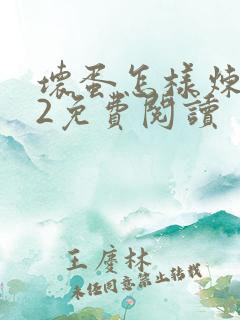 壞蛋怎樣煉
2免費閱讀
王慶林
未经同意禁止转载